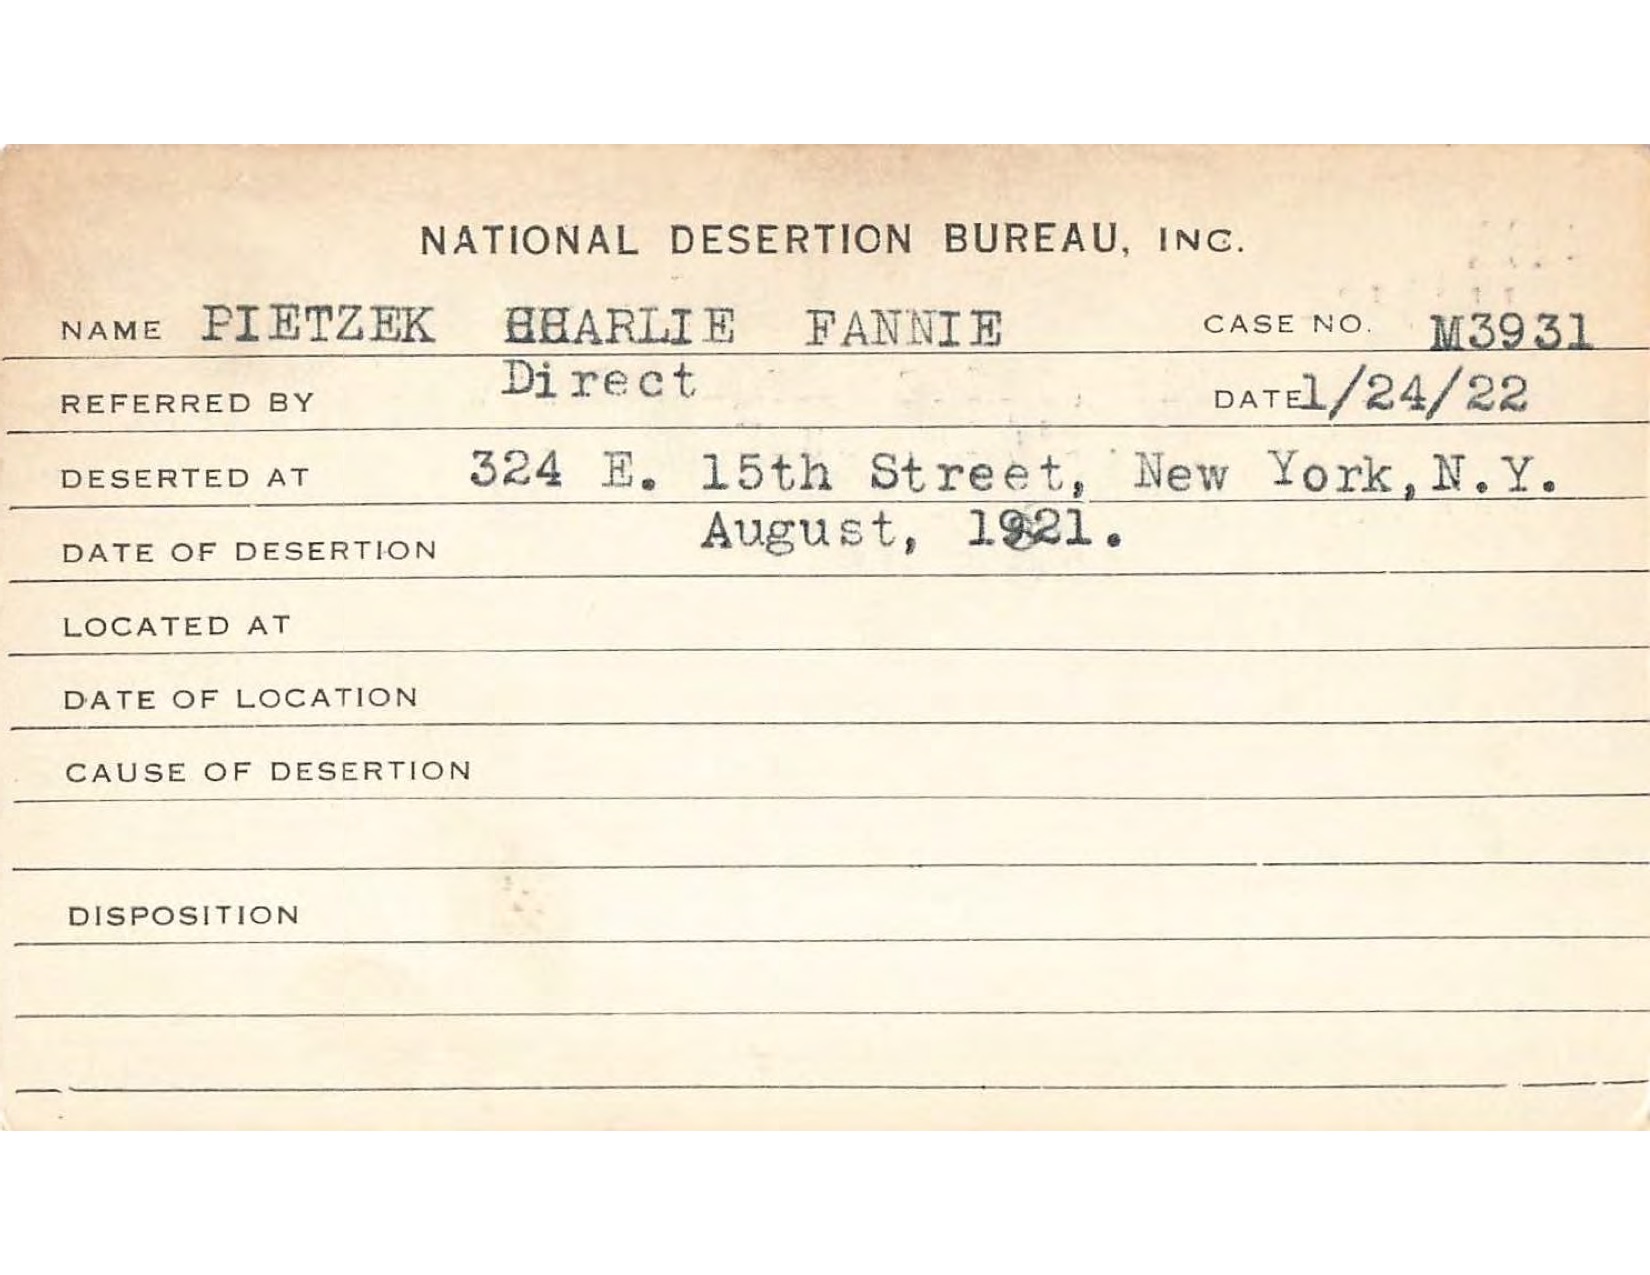 NATIONAL DESERTION BUREAU, INC.
NAME PIETZEK CHARLIE FANNIE CASE NO. M3931
REFERRED BY Direct DATE 1/24/22
DESERTED AT 324 E. 15th Street, New York, N.Y.
DATE OF DESERTION August, 1921.
LOCATED AT
DATE OF LOCATION
CAUSE OF DESERTION
DISPOSITION